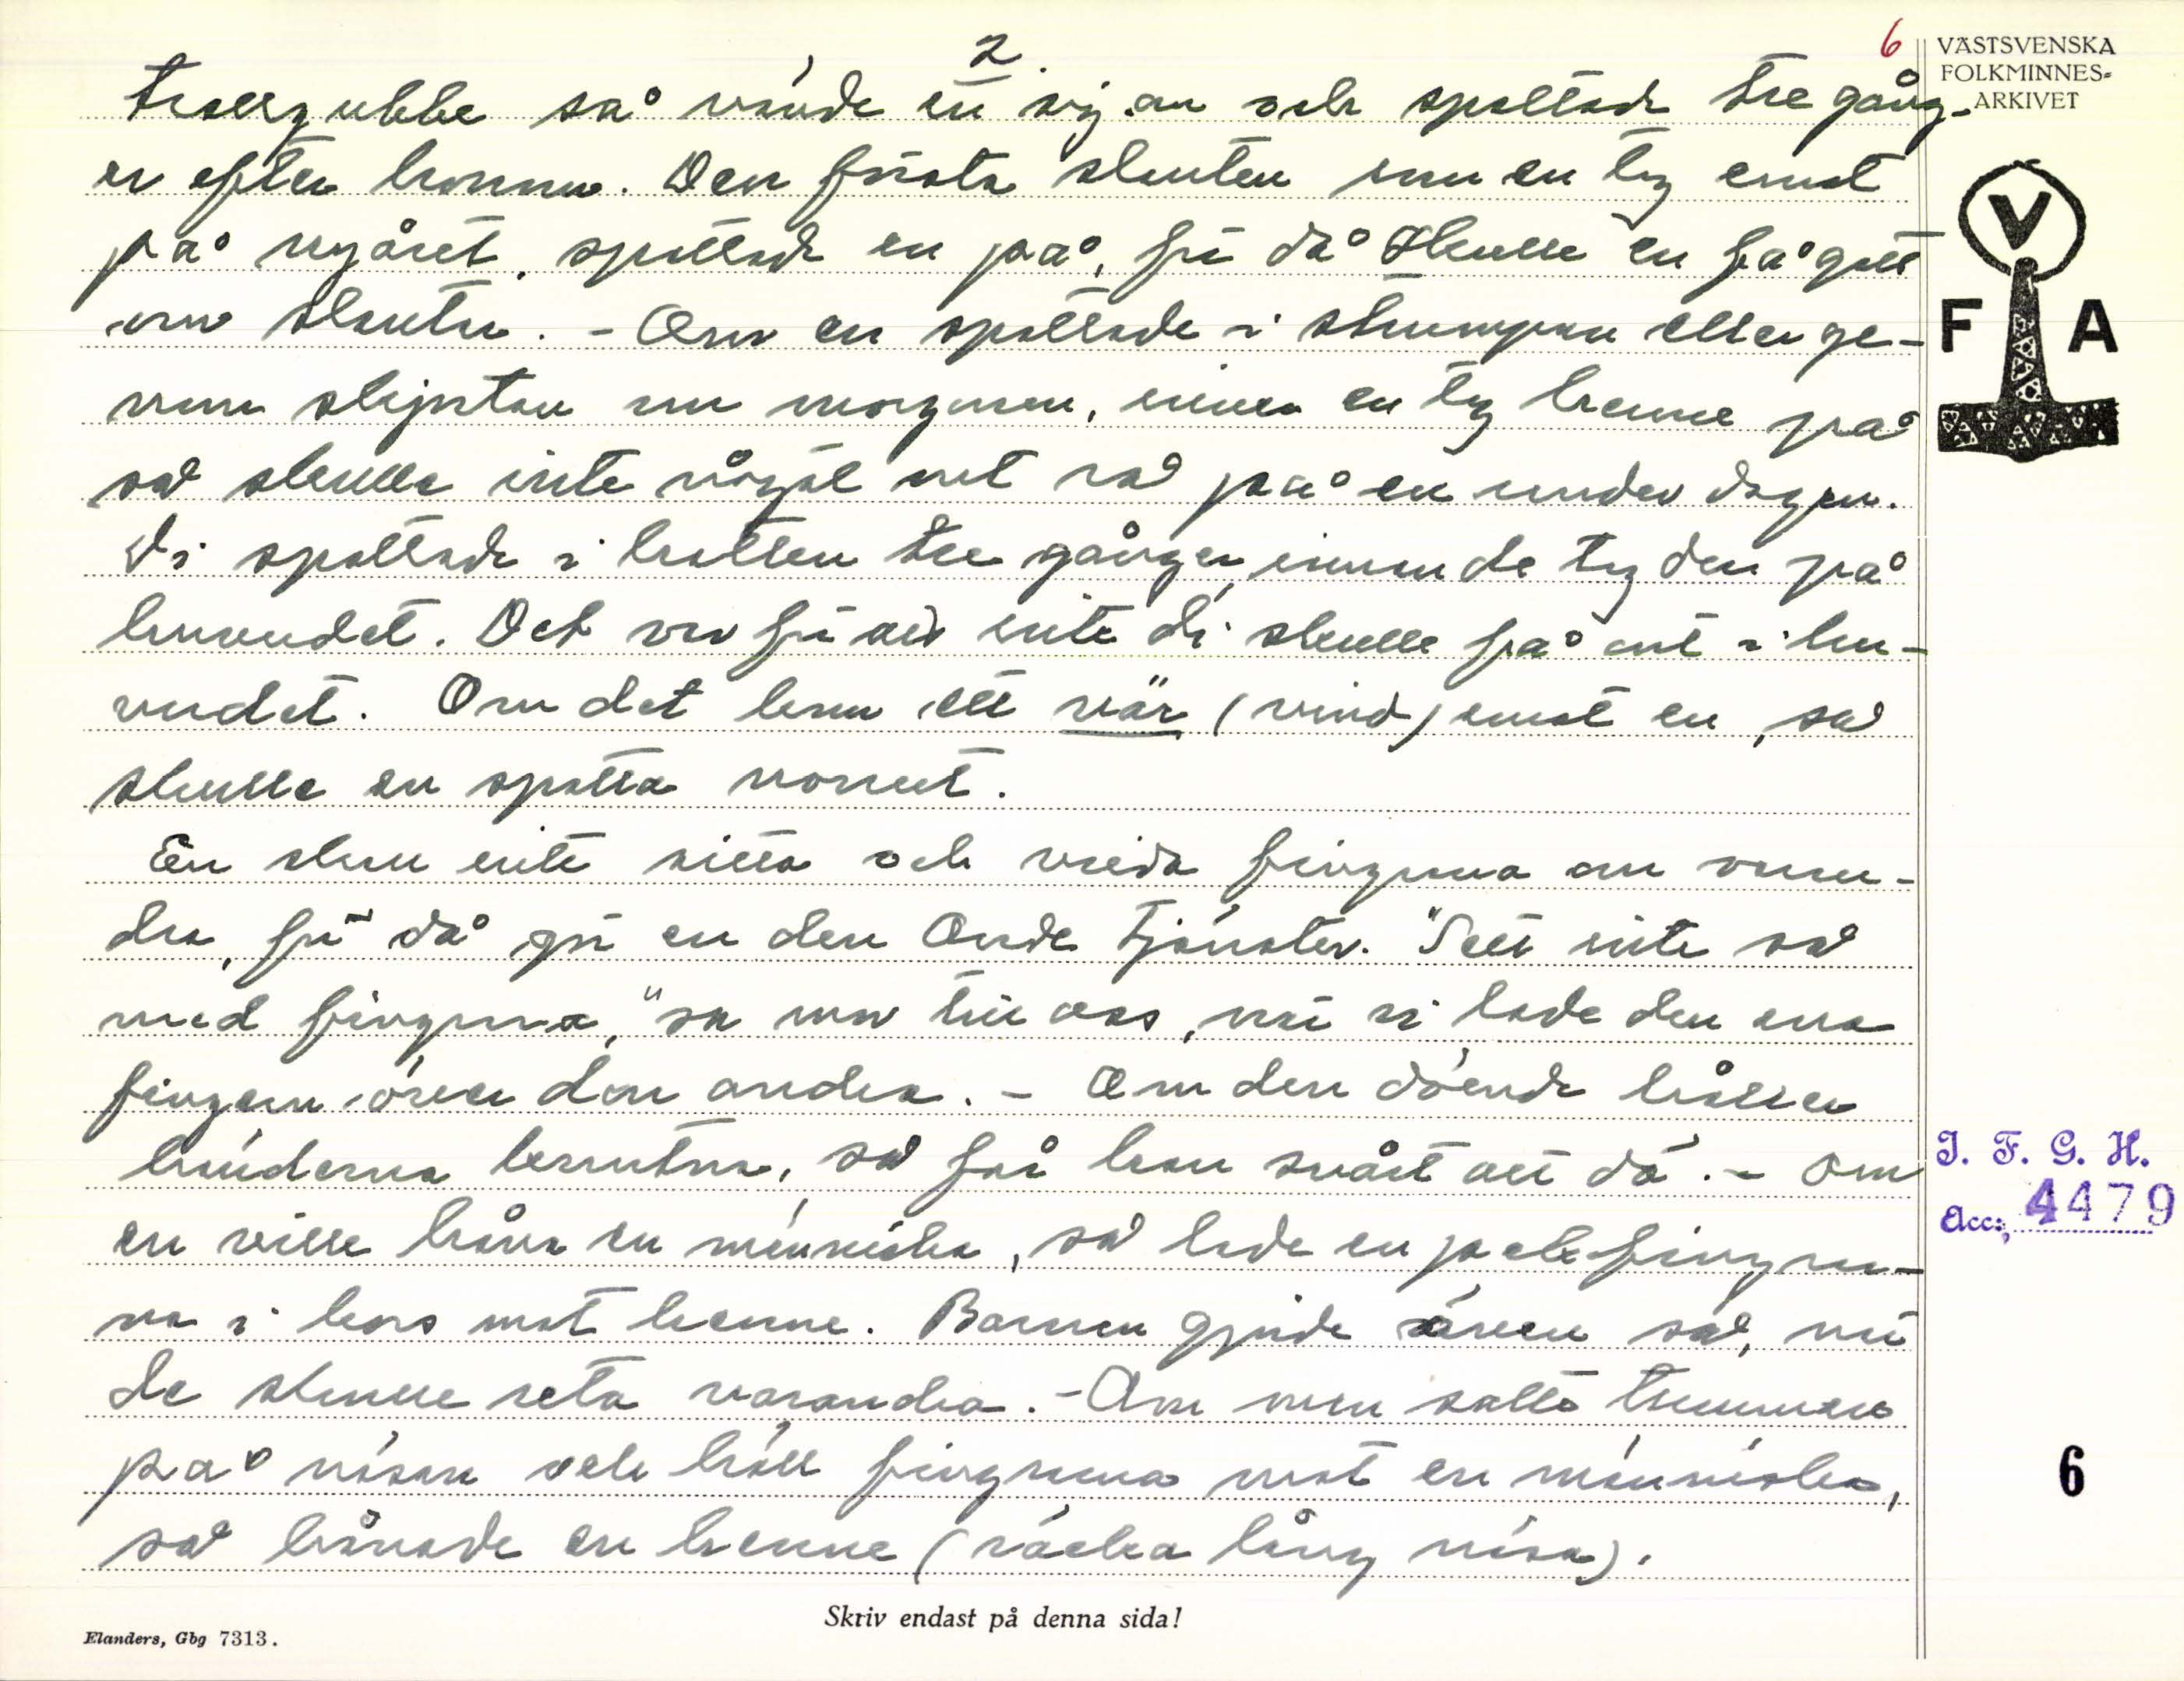 2.
6
VÄSTSVENSKA
FOLKMINNES-
ARKIVET
V
F A
trollgubbe så vände en sig om och spottade tre gång-
er efter honom. Den första slanten som en tog emot
på nyåret, spottade en på, för då skulle en få gott
om slantar. - Om en spottade i strumpan eller ge-
nom skjortan om morgonen, innan en tog henne på
så skulle inte någåt ont rå på en under dagen.
Di spottade i hatten tre gånger, innan de tog den på
huvudet. Det var för att inte di skulle få ont i hu-
vudet. Om det kom ett vär (vind) emot en, så
skulle en spotta norrut.
En skall inte sitta och vrida fingrarna om varan-
dra, för då gör en den Onde tjänster. "Sitt inte så
med fingrarna," sa mor till oss, när vi lade den ena
fingern över den andra. - Om den döende håller
händerna knutna, så får han svårt att dö. - Om
en ville håna en människa, så lade en pekfingrar-
na i kors mot henne. Barnen gjorde även så, när
de skulle reta varandra. - Om man satte tummen
på näsan och höll fingrarna mot en människa,
så hånade en henne (räcka lång näsa).
I. F. G. H.
Acc: 4479
6
Skriv endast på denna sida!
Elanders, Gbg 7313.